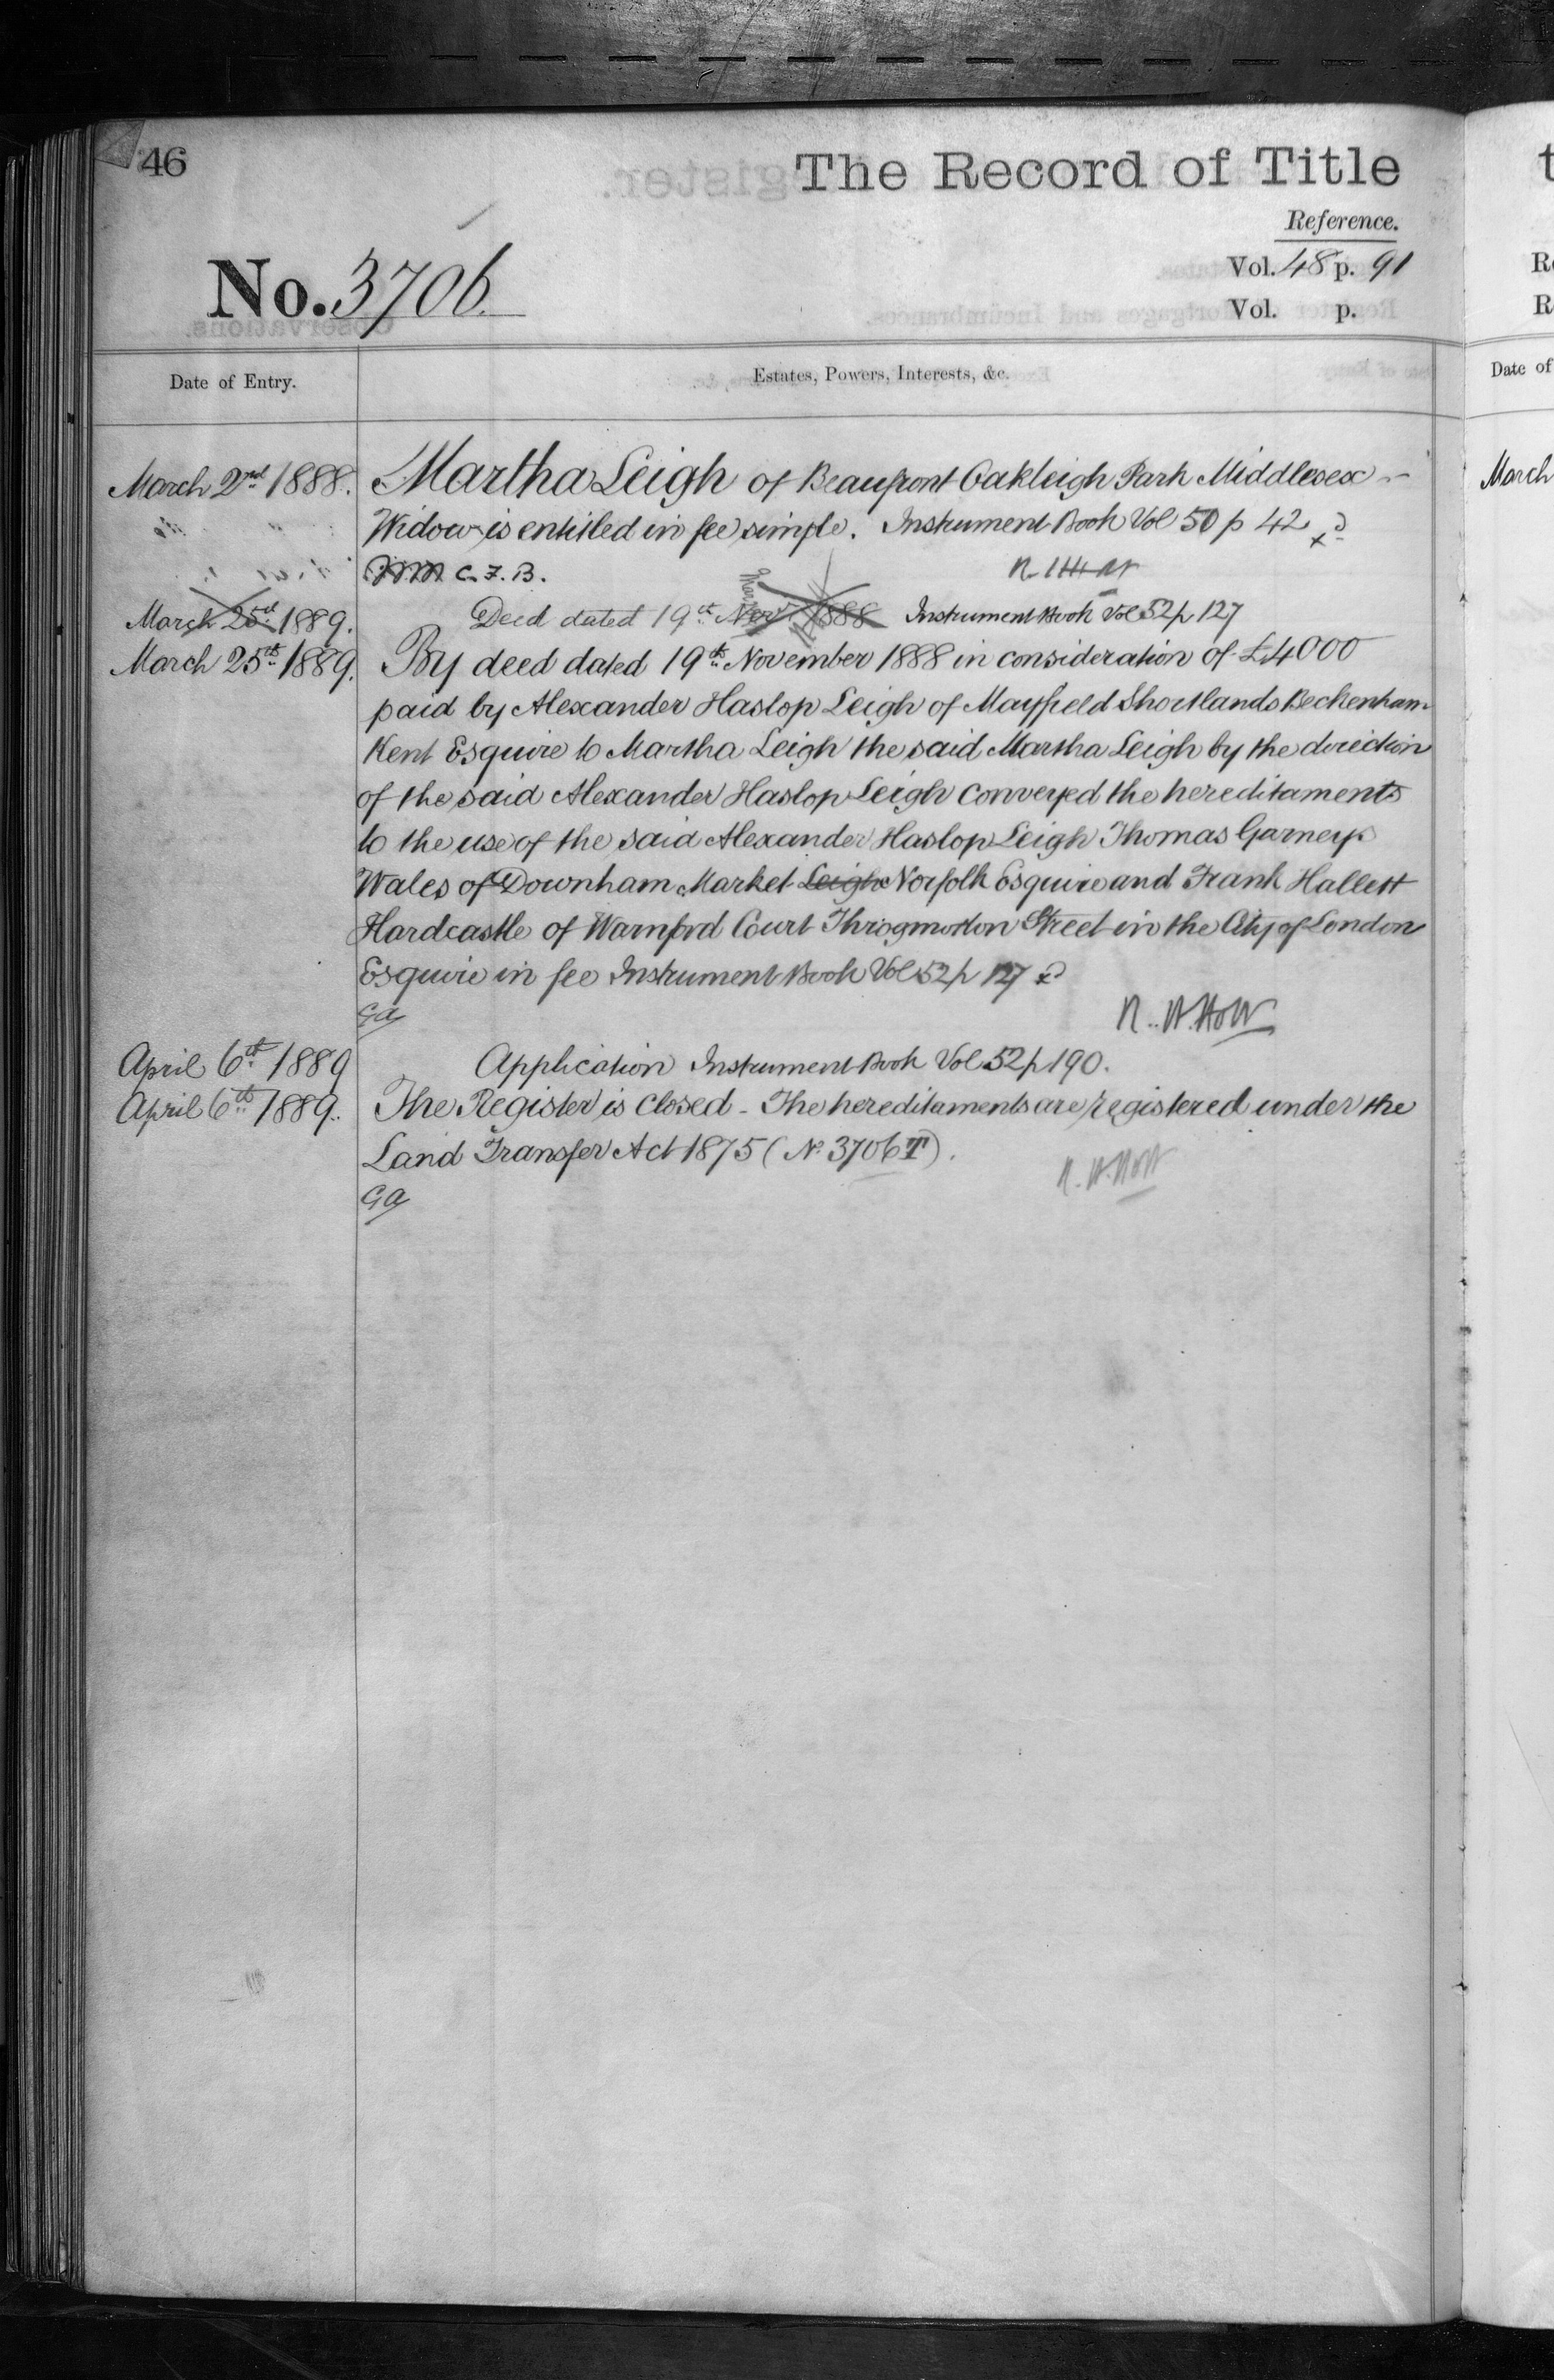 46
The Record of Title
Reference.
No. 3706.
Vol. 48 p. 91
Vol. p.
Date of Entry.
Estates, Powers, Interests, &c.
March 2nd 1888. Martha Leigh of Beaufront Oakleigh Park Middlesex
Widow is entitled in fee simple. Instrument Book Vol 50 p 42
C. F. B.
March 25th 1889. Deed dated 19th Novr. 1888 Instrument Book Vol 52 p 127
March 25th 1889. By deed dated 19th November 1888 in consideration of £4000
paid by Alexander Haslop Leigh of Mayfield Shortlands Beckenham
Kent Esquire to Martha Leigh the said Martha Leigh by the direction
of the said Alexander Haslop Leigh conveyed the hereditaments
to the use of the said Alexander Haslop Leigh Thomas Garneys
Wales of Downham Market Leigh Norfolk Esquire and Frank Hallett
Hardcastle of Warnford Court Throgmorton Street in the City of London
Esquire in fee Instrument Book Vol 52 p 127
GA
April 6th 1889 Application Instrument Book Vol 52 p 190.
April 6th 1889. The Register is closed - The hereditaments are registered under the
Land Transfer Act 1875 (No 3706 T).
GA
t
R
R
Date of
March